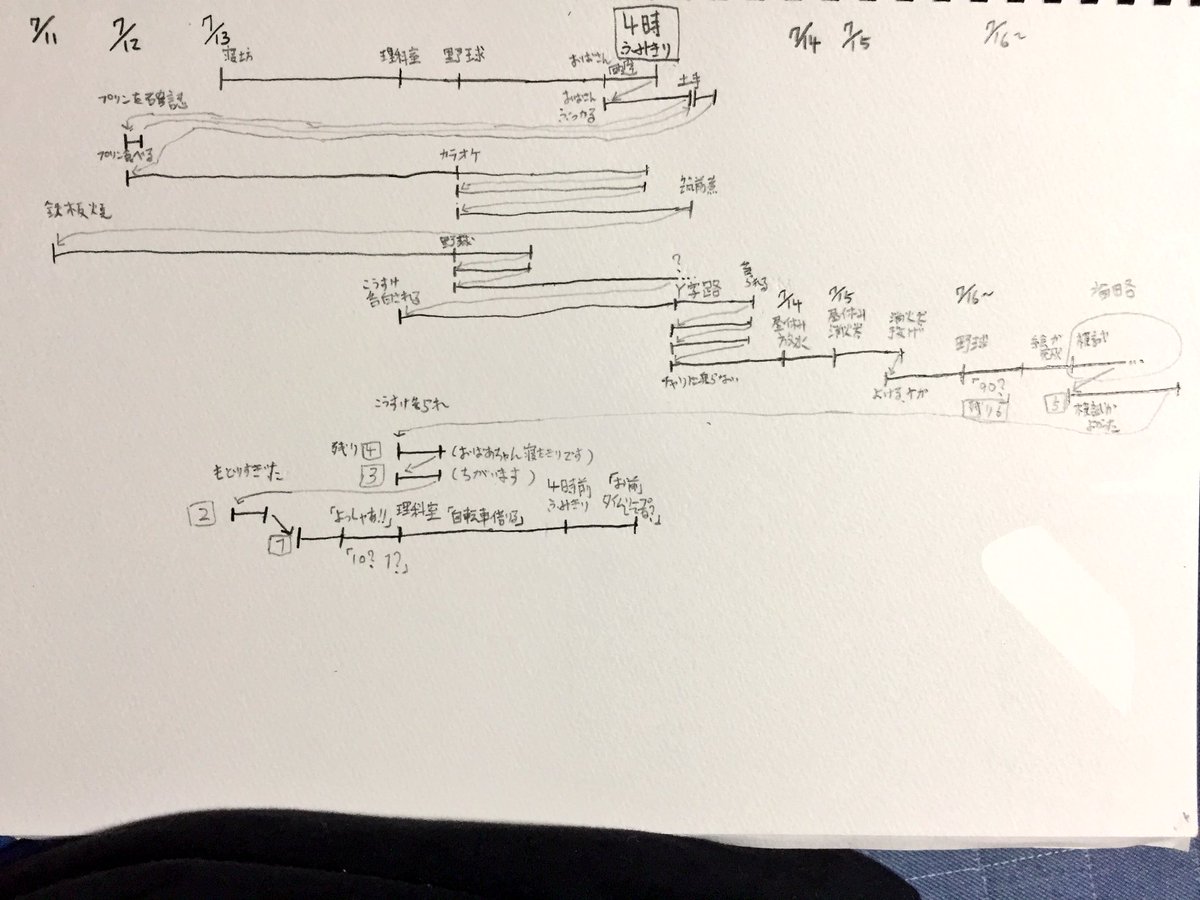 7/11 7/12 7/13 4時 ふみきり 7/14 7/15 7/16~
寝坊 理科室 野球 おばさん
プリンを確認 おばさん ぶつかる 土手
プリン食べる カラオケ 筑前煮
鉄板焼 野球
こうすけ 告白される ? Y字路 7/14 昼休み 7/15 昼休み 消火器 消火器 投げ 7/16~ 野球 絵が 完成
チャリに乗らない よける、ケガ 「90? 残り6 5
こうすけ
残り 4 (おばあちゃん寝たきりです)
3 (ちがいます)
もどりすぎた
2 「よっしゃあ!!」 理科室 「自転車借りる」 4時前 ふみきり 「お前 タイムリープしてる?」
1 「10? 1?」